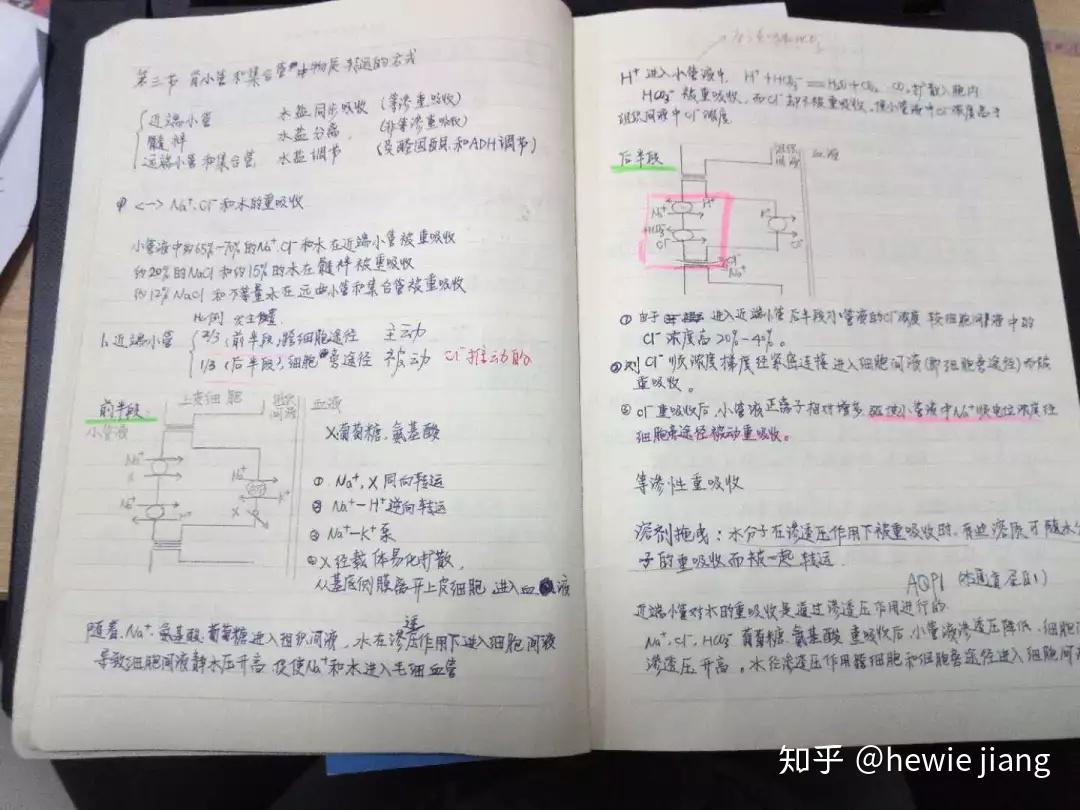 第三节 肾小管和集合管中物质转运的方式
近端小管 水盐同步吸收 (等渗重吸收)
髓袢 水盐分离 (非等渗重吸收)
远端小管和集合管 水盐调节 (受醛固酮和ADH调节)
<-> Na⁺.Cl⁻和水的重吸收
小管液中约65%-70%的Na⁺.Cl⁻和水在近端小管被重吸收
约20%的NaCl和约15%的水在髓袢被重吸收
约12%NaCl和不等量水在远曲小管和集合管被重吸收
比例 发生
1.近端小管
2/3 (前半段) 跨细胞途径 主动
1/3 (后半段) 细胞旁途径 被动 Cl⁻推动的
前半段
上皮细胞
组织间液
血液
小管液
X葡萄糖.氨基酸
Na⁺
X
Na⁺
Na⁺
K⁺
X
① Na⁺, X同向转运
② Na⁺-H⁺逆向转运
③ Na⁺-K⁺泵
④ X经载体易化扩散,
从基底侧膜离开上皮细胞 进入血液
随着.Na⁺.氨基酸.葡萄糖进入组织间液, 水在渗透压作用下进入细胞间液
导致细胞间液静水压升高 促使Na⁺和水进入毛细血管
H⁺进入小管液中, H⁺+HCO₃⁻ = H₂O+CO₂ CO₂扩散入胞内
HCO₃⁻被重吸收, 而Cl⁻却不被重吸收, 使小管液中Cl⁻浓度高于
组织间液中Cl⁻浓度
后半段
组织间液
血液
Na⁺
H⁺
HCO₃⁻
Cl⁻
K⁺
Cl⁻
Cl⁻
Na⁺
① 由于进入近端小管后半段小管液的Cl⁻浓度较细胞间液中的
Cl⁻浓度高20%-40%。
②则Cl⁻顺浓度梯度经紧密连接进入细胞间液(即细胞旁途径)而被
重吸收。
③ Cl⁻重吸收后, 小管液正离子相对增多 驱使小管液中Na⁺顺电位浓度经
细胞旁途径被动重吸收。
等渗性重吸收
溶剂拖曳: 水分子在渗透压作用下被重吸收时, 有些溶质可随水分
子的重吸收而被一起转运
AQP1 (水通道蛋白1)
近端小管对水的重吸收是通过渗透压作用进行的
Na⁺.Cl⁻.HCO₃⁻ 葡萄糖.氨基酸 重吸收后, 小管液渗透压降低, 细胞间
渗透压升高。水经渗透压作用跨细胞和细胞旁途径进入细胞间液
知乎 @hewie jiang